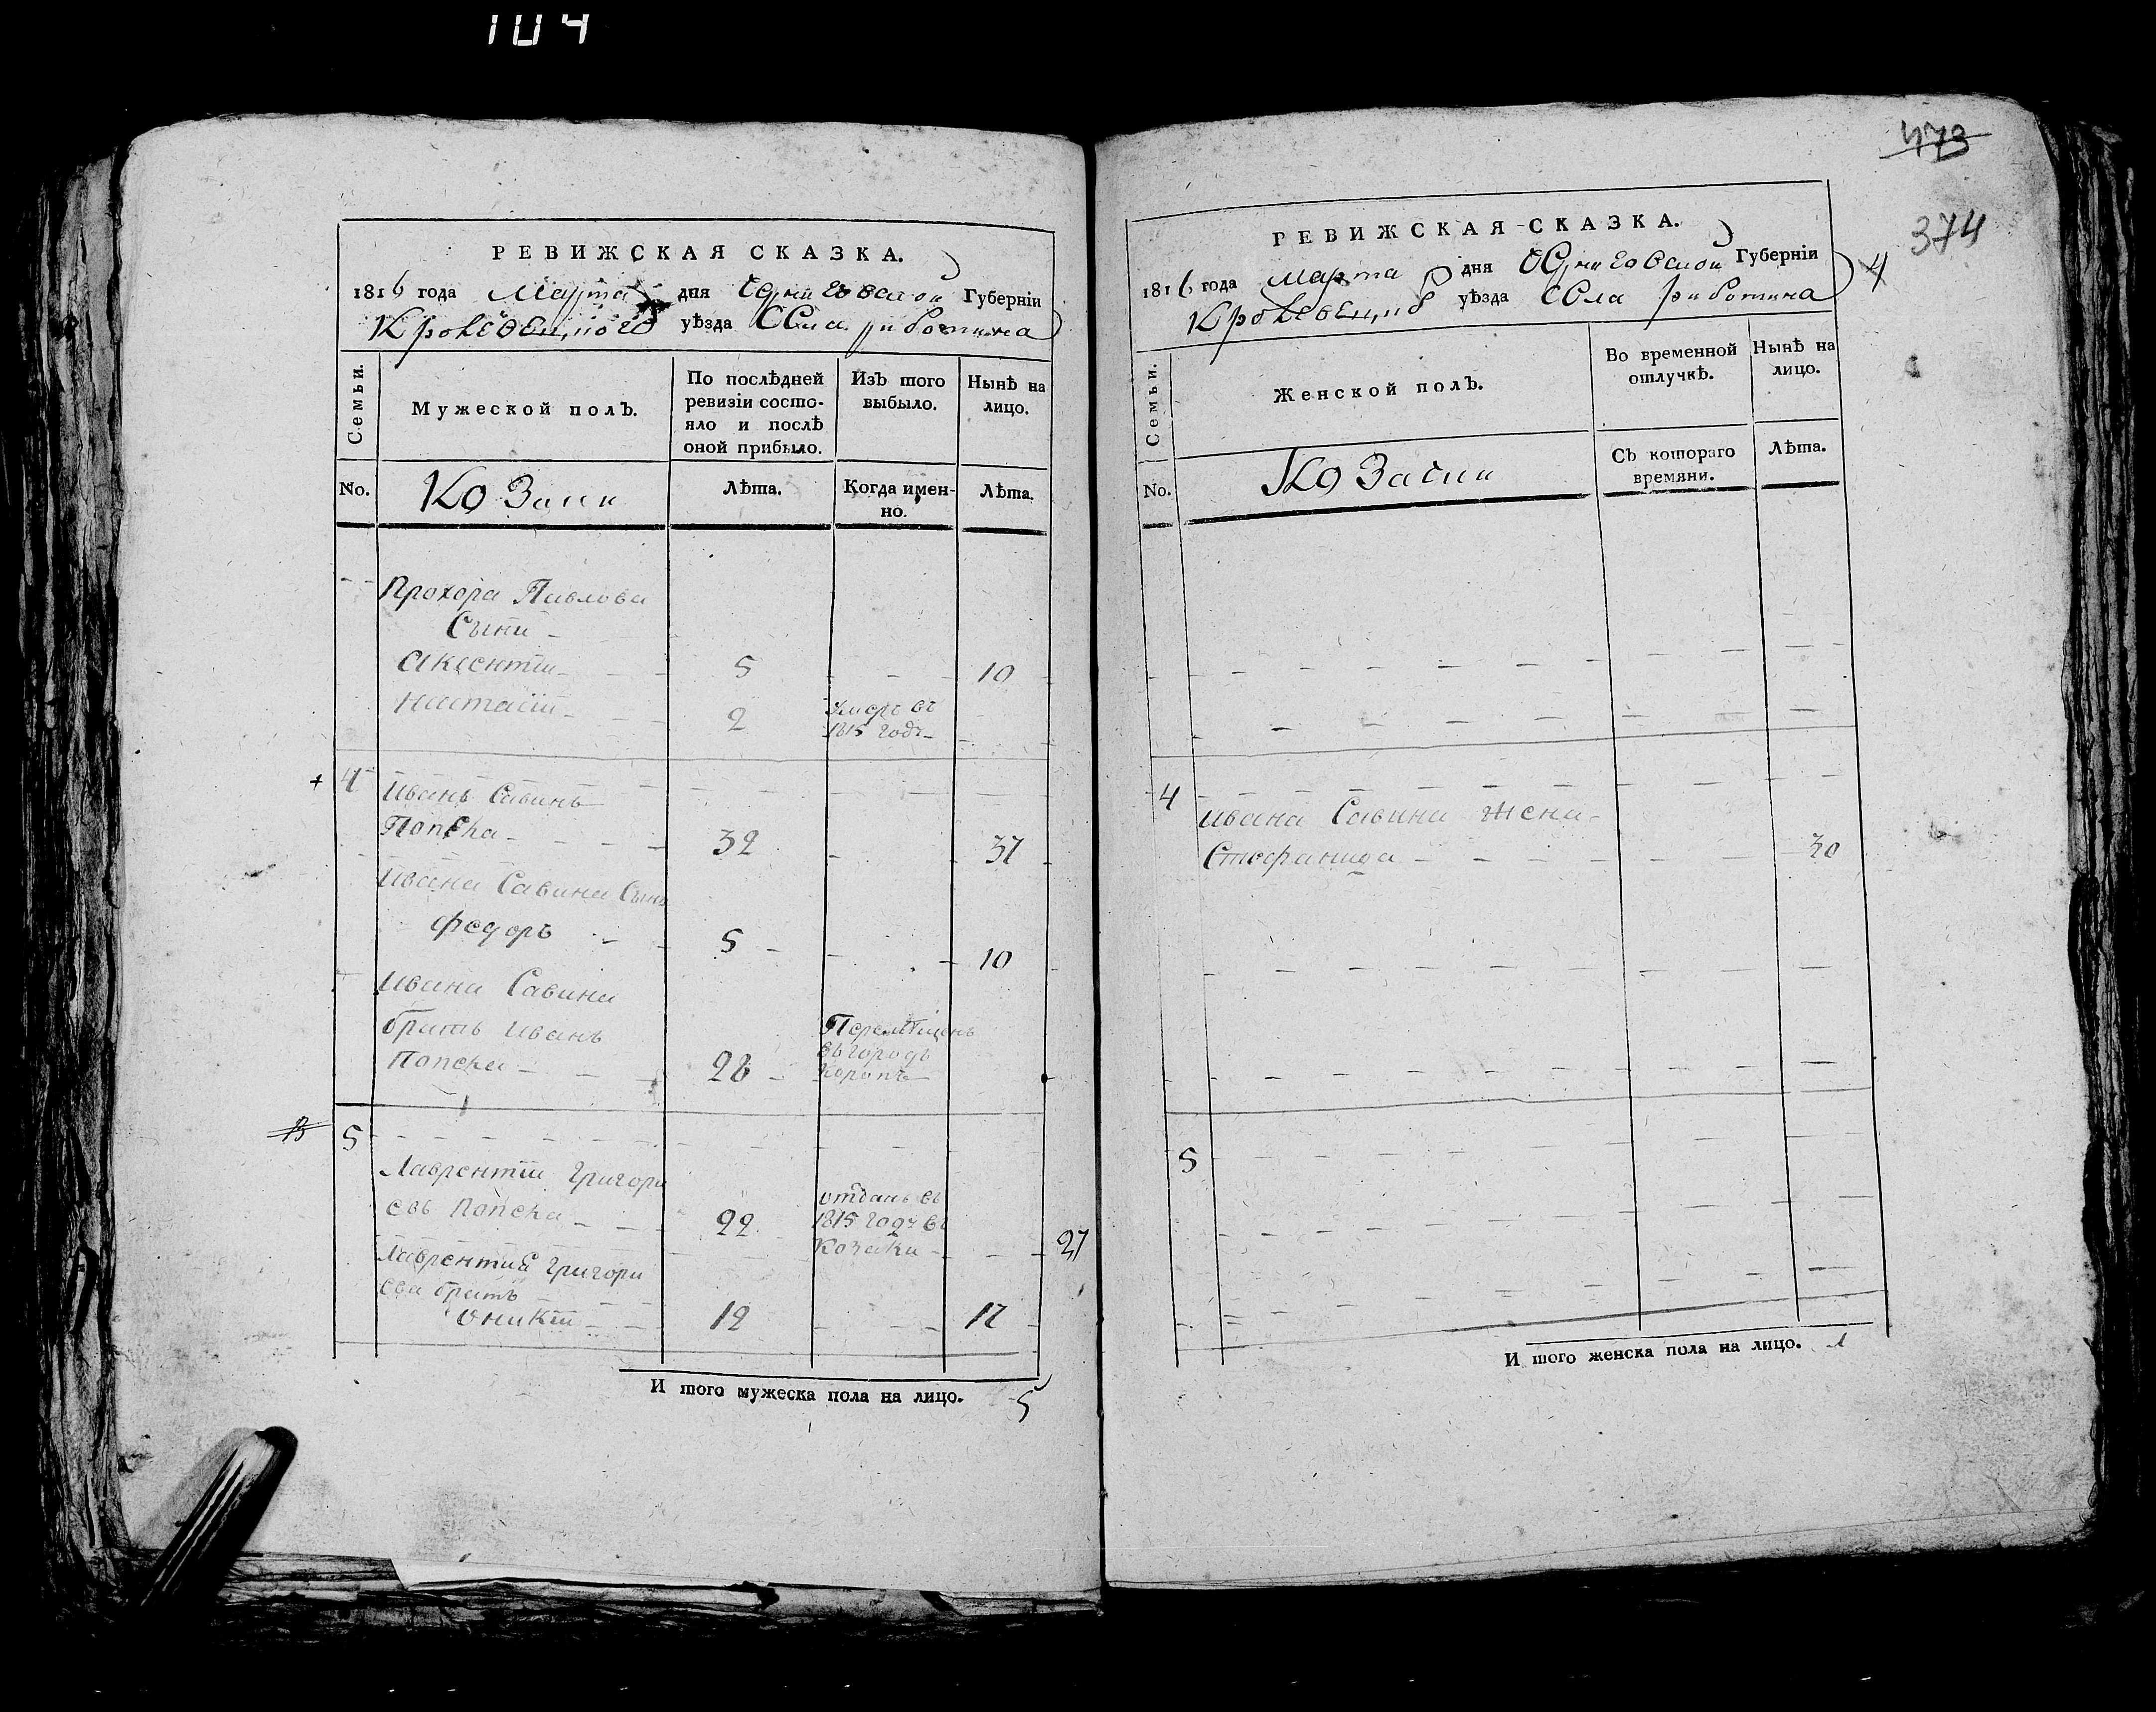 104
473
374
РЕВИЖСКАЯ СКАЗКА.
1816 года Марта дня Черниговской Губерніи
Кролевецкого уѣзда Села Риботина
Семьи.
Мужеской полъ.
По послѣдней ревизіи состояло и послѣ оной прибыло.
Изъ того выбыло.
Нынѣ на лицо.
No.
Козаки
Лѣта.
Когда именно.
Лѣта.
Прохора Павлова
Сыни
Аксентіи 5 10
2 умеръ въ
1815 годъ
4 Иванъ Савинъ
Попека 32 37
Ивана Савина Сынъ
Федоръ 5 10
Ивана Савина
братъ Иванъ
Попека 28
Перемѣщенъ
въ городъ
Коропъ
5
Лаврентіи Григори
евъ Попека 22
отданъ въ
1815 годъ въ
Козаки
27
Лаврентия Григори
ева братъ
Оникіи 12 17
И того мужеска пола на лицо. 5
РЕВИЖСКАЯ СКАЗКА.
1816 года Марта дня Черниговской Губерніи
4
Кролевецкого уѣзда Села Риботина
Семьи.
Женской полъ.
Во временной отлучкѣ.
Нынѣ на лицо.
No.
Козаки
Съ котораго времяни.
Лѣта.
4
Ивана Савина жена
Стефанида 30
5
И того женска пола на лицо. 1